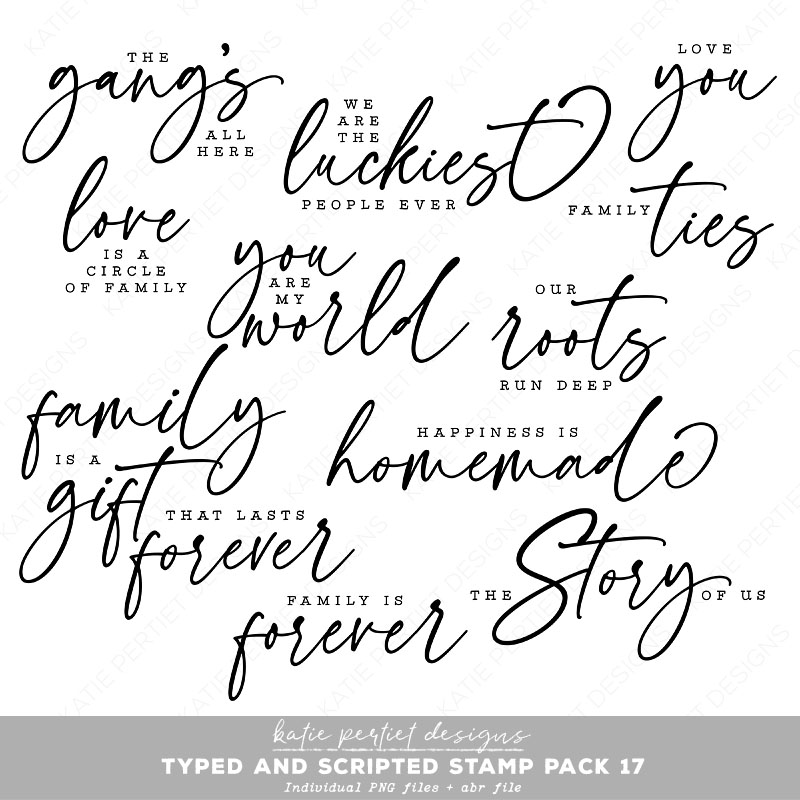 THE
gang's
ALL
HERE
WE
ARE
THE
luckiest
PEOPLE EVER
LOVE
you
love
IS A
CIRCLE
OF FAMILY
FAMILY ties
you
ARE
MY
world
OUR
roots
RUN DEEP
family
IS A
gift
THAT LASTS
forever
HAPPINESS IS
homemade
THE Story OF US
FAMILY IS
forever
katie pertiet designs
TYPED AND SCRIPTED STAMP PACK 17
Individual PNG files + abr file
KATIE PERTIET DESIGNS